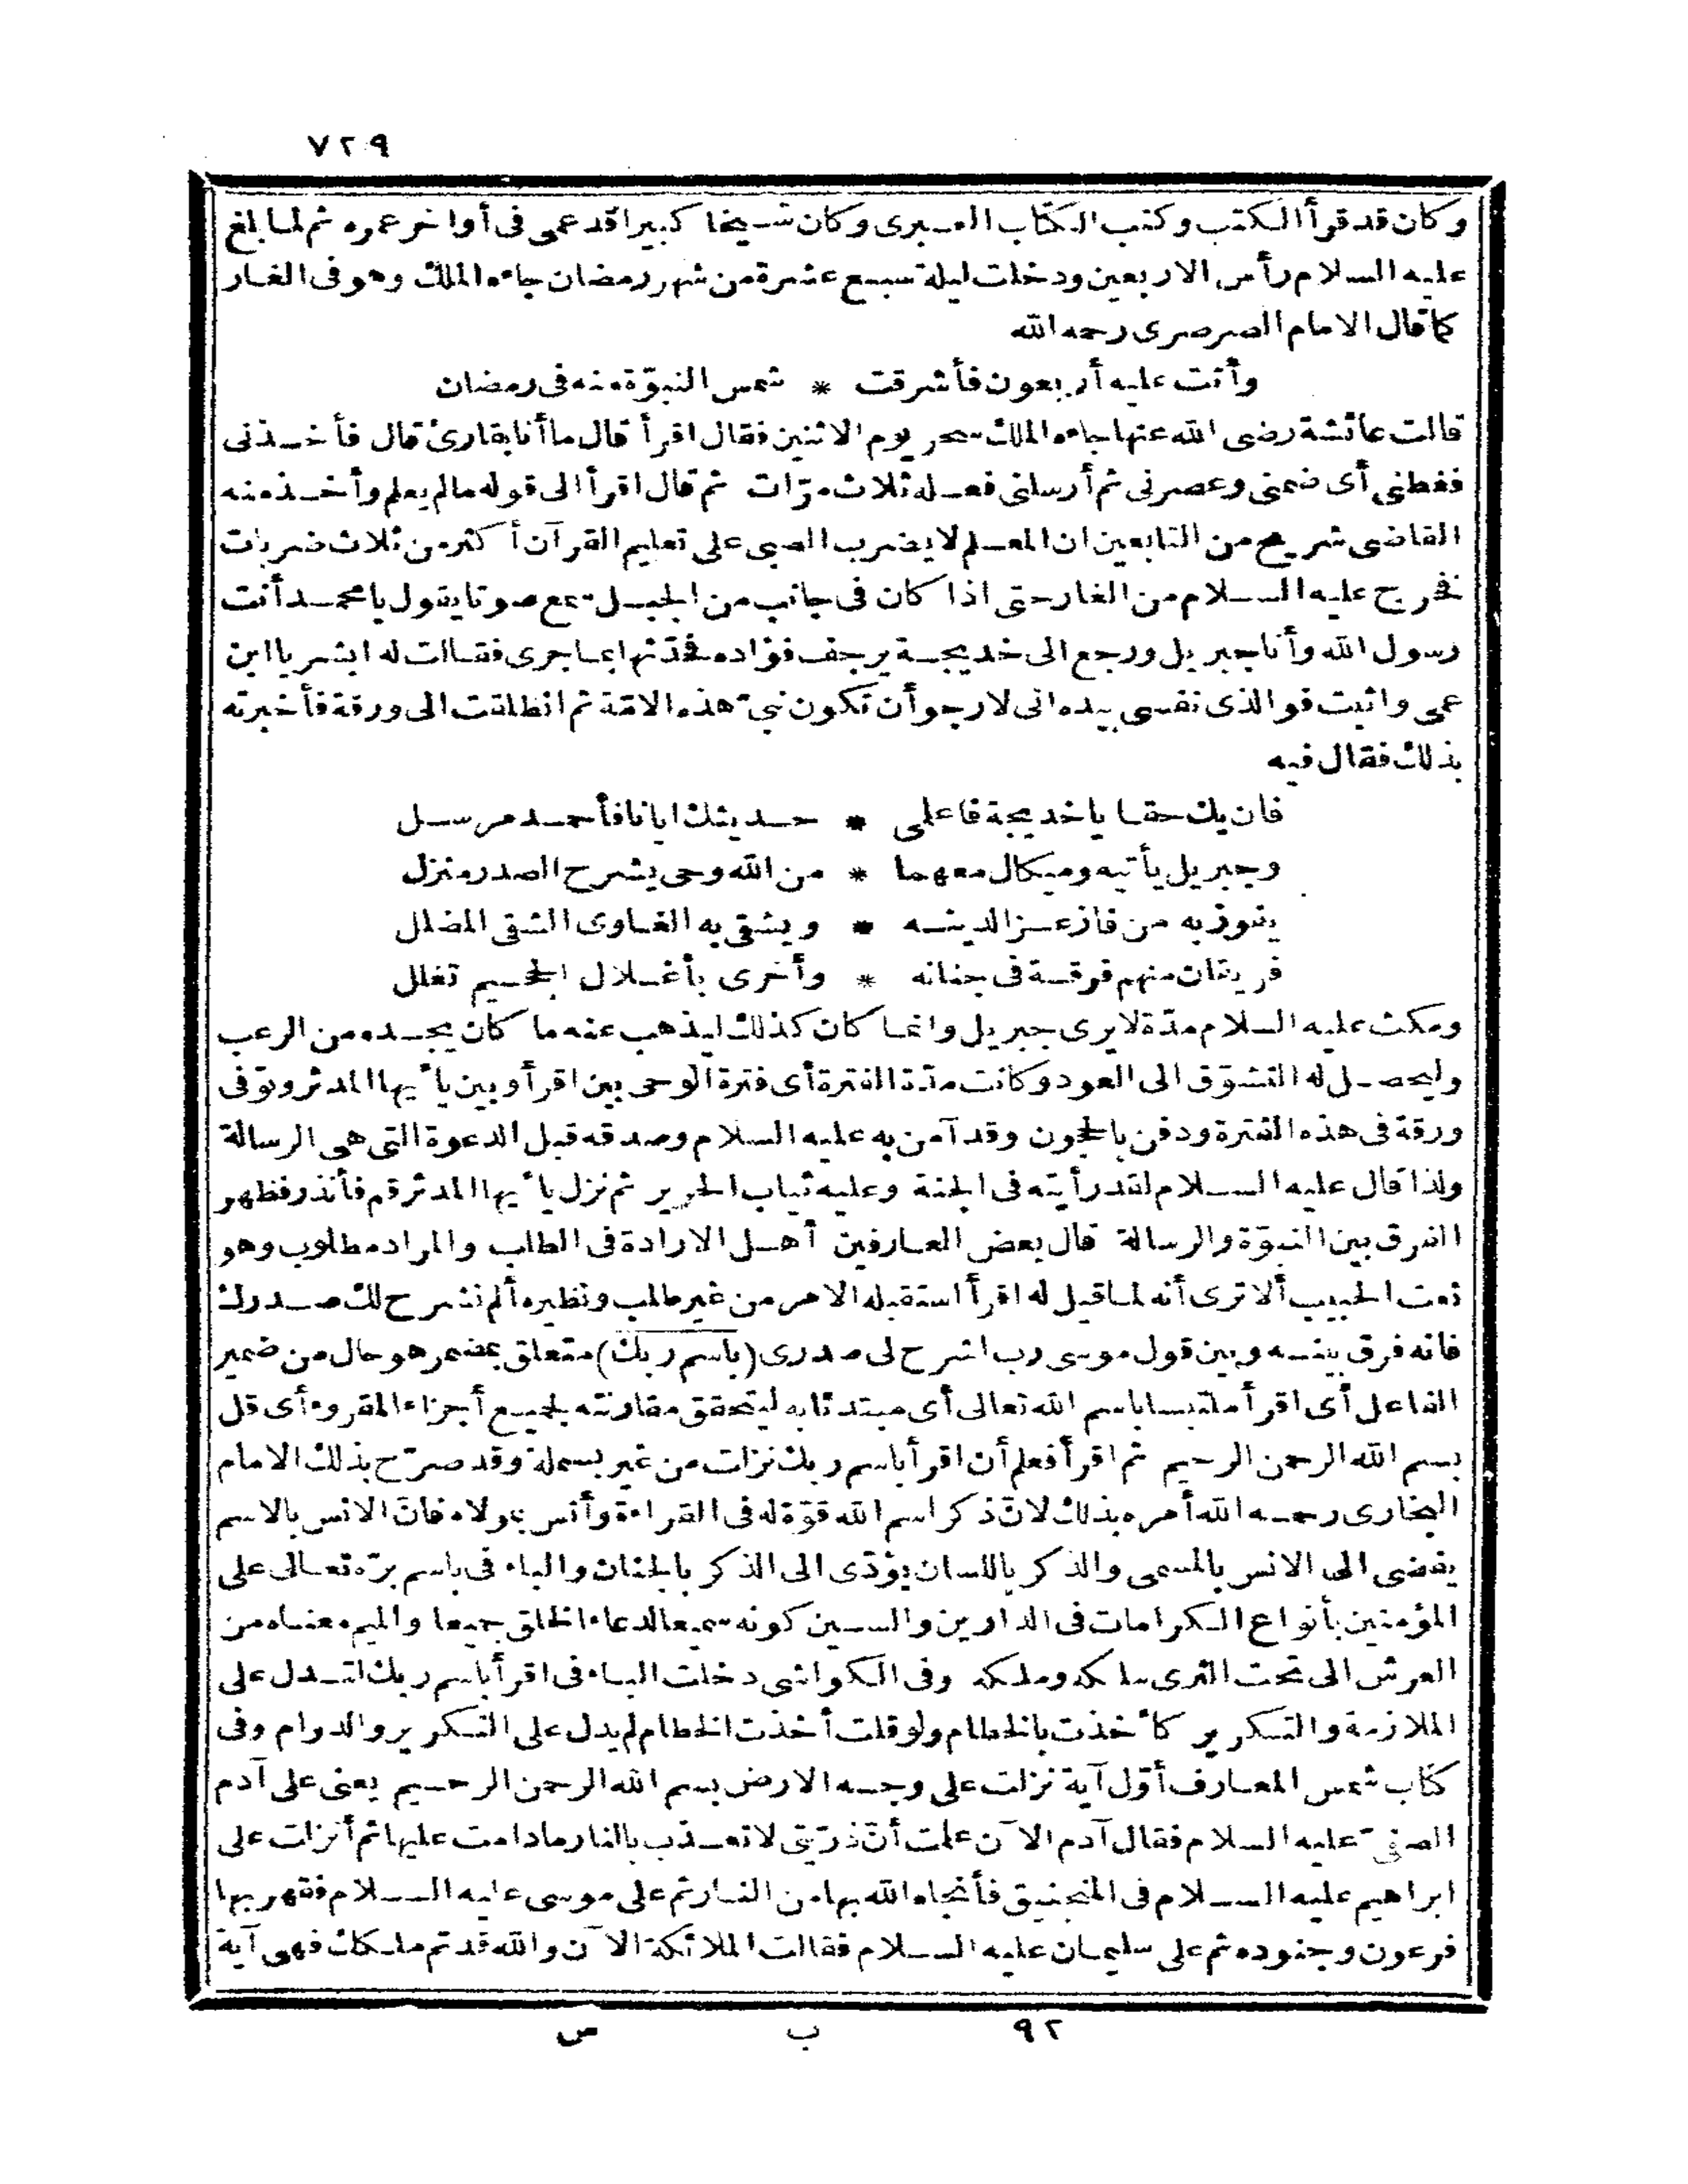 ٧٢٩
وكان قد قرأ الكتب وكتب الكتاب العبرى وكان شيخا كبيرا قد عمى فى أواخر عمره ثم لما بلغ
عليه السلام رأس الاربعين ودخلت ليلة سبع عشرة من شهر رمضان جاءه الملك وهو فى الغار
كما قال الامام الصرصرى رحمه الله
وأتت عليه أربعون فأشرقت * شمس النبوّة منه فى رمضان
قالت عائشة رضى الله عنها جاءه الملك سحر يوم الاثنين فقال اقرأ قال ما أنا بقارئ قال فأخذنى
فغطنى أى ضمنى وعصرنى ثم أرسلنى فعله ثلاث مرّات ثم قال اقرأ الى قوله ما لم يعلم وأخذ منه
القاضى شريح من التابعين ان المعلم لا يضرب الصبى على تعليم القرآن أكثر من ثلاث ضربات
فخرج عليه السلام من الغار حتى اذا كان فى جانب من الجبل سمع صوتا يقول يا محمد أنت
رسول الله وأنا جبريل ورجع الى خديجة يرجف فؤاده فحدّثها بما جرى فقالت له ابشر يا ابن
عمى واثبت فوالذى نفسى بيده انى لارجو أن تكون نبىّ هذه الامّة ثم انطلقت الى ورقة فأخبرته
بذلك فقال فيه
فان يك حقا يا خديجة فاعلمى * حديثك ايانا فأحمد مرسل
وجبريل يأتيه وميكال معهما * من الله وحى يشرح الصدر منزل
يفوز به من فاز عز الدينه * ويشقى به الغاوى الشقى المضلل
فريقان منهم فرقة فى جنانه * وأخرى بأغلال الجحيم تغلل
ومكث عليه السلام مدّة لا يرى جبريل وانما كان كذلك ليذهب عنه ما كان يجده من الرعب
وليحصل له التشوّق الى العود وكانت مدّة الفترة أى فترة الوحى بين اقرأ وبين يا أيها المدثر وتوفى
ورقة فى هذه الفترة ودفن بالحجون وقد آمن به عليه السلام وصدقه قبل الدعوة التى هى الرسالة
ولذا قال عليه السلام لقد رأيته فى الجنة وعليه ثياب الحرير ثم نزل يا أيها المدثر قم فأنذر فظهر
الفرق بين النبوّة والرسالة قال بعض العارفين أهل الارادة فى الطلب والمراد مطلوب وهو
نعت الحبيب ألا ترى أنه لما قيل له اقرأ استقبله الامر من غير طلب ونظيره ألم نشرح لك صدرك
فانه فرق بينه وبين قول موسى رب اشرح لى صدرى (باسم ربك) متعلق بمضمر هو حال من ضمير
الفاعل أى اقرأ ملتبسا باسم الله تعالى أى مبتدئا به ليتحقق مقارنته لجميع أجزاء المقروء أى قل
بسم الله الرحمن الرحيم ثم اقرأ فعلم أن اقرأ باسم ربك نزلت من غير بسملة وقد صرّح بذلك الامام
البخارى رحمه الله أمره بذلك لانّ ذكر اسم الله قوّة له فى القراءة وأنس بمولاه فانّ الانس بالاسم
يفضى الى الانس بالمسمى والذكر باللسان يؤدّى الى الذكر بالجنان والباء فى باسم برّه تعالى على
المؤمنين بأنواع الكرامات فى الدارين والسين كونه سميعا لدعاء الخلق جميعا والميم معناه من
العرش الى تحت الثرى ملكه وملكه وفى الكواشى دخلت الباء فى اقرأ باسم ربك لتدل على
الملازمة والتكرير كأخذت بالخطام ولو قلت أخذت الخطام لم يدل على التكرير والدوام وفى
كتاب شمس المعارف أوّل آية نزلت على وجه الارض بسم الله الرحمن الرحيم يعنى على آدم
الصفىّ عليه السلام فقال آدم الآن علمت أنّ ذرّيتى لا تعذب بالنار ما دامت عليها ثم أنزلت على
ابراهيم عليه السلام فى المنجنيق فأنجاه الله بها من النار ثم على موسى عليه السلام فقهر بها
فرعون وجنوده ثم على سليمان عليه السلام فقالت الملائكة الآن والله قد تم ملكك فهى آية
٩٢ ب ص